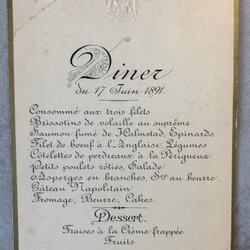 Diner
du 17 Juin 1891.
Consommé aux trois filets
Brissotins de volaille au suprême
Saumon fumé de Halmstad, Epinards
Filet de boeuf à l'Anglaise, Légumes
Côtelettes de perdreaux à la Périgueux
Petits poulets rôtis, Salade
Asperges en branches, Sce au beurre
Gâteau Napolitain
Fromage, Beurre, Cakes.
Dessert.
Fraises à la Crème frappée
Fruits.